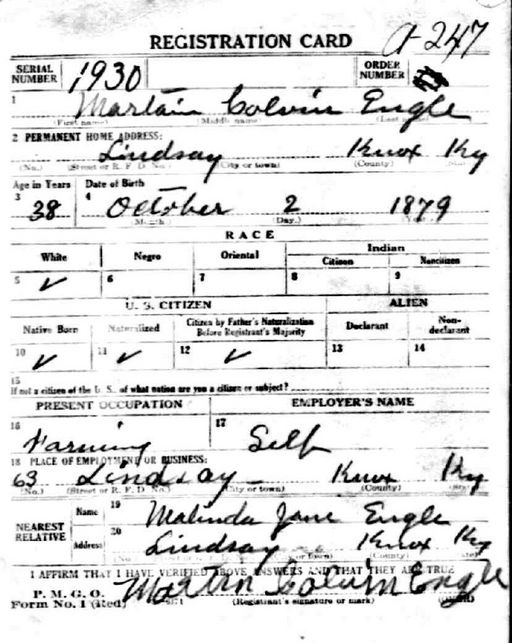 REGISTRATION CARD A-247
SERIAL NUMBER 1930 ORDER NUMBER
1 Martain Colvin Engle
(First name) (Middle name) (Last name)
2 PERMANENT HOME ADDRESS:
Lindsay Knox Ky
(No.) (Street or R. F. D. No.) (City or town) (County)
Age in Years Date of Birth
3 38 4 October 2 1879
(Month) (Day.)
RACE
White Negro Oriental Indian
Citizen Noncitizen
5 ✓ 6 7 8 9
U. S. CITIZEN ALIEN
Native Born Naturalized Citizen by Father's Naturalization Before Registrant's Majority Declarant Non-declarant
10 ✓ 11 ✓ 12 ✓ 13 14
15
If not a citizen of the U. S., of what nation are you a citizen or subject?
PRESENT OCCUPATION EMPLOYER'S NAME
16 Farming 17 Self
18 PLACE OF EMPLOYMENT OR BUSINESS:
63 Lindsay Knox Ky
(No.) (Street or R. F. D. No.) (City or town) (County)
NEAREST RELATIVE Name 19 Malinda Jane Engle
Address 20 Lindsay Knox Ky
(No. or town) (County)
I AFFIRM THAT I HAVE VERIFIED ABOVE ANSWERS AND THAT THEY ARE TRUE
P. M. G. O.
Form No. 1 (Red) Martin Colvin Engle
(Registrant's signature or mark)